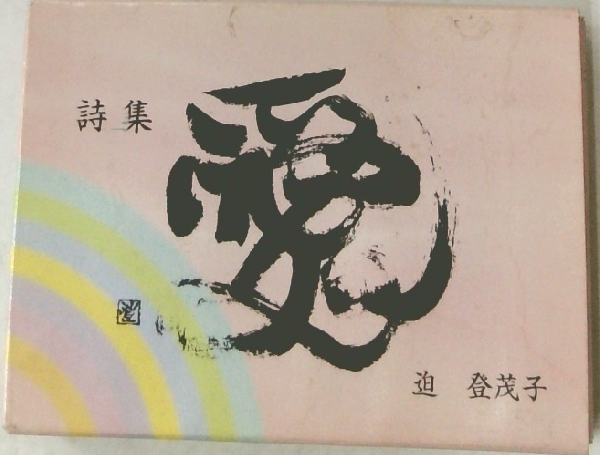 詩集
愛
迫 登茂子